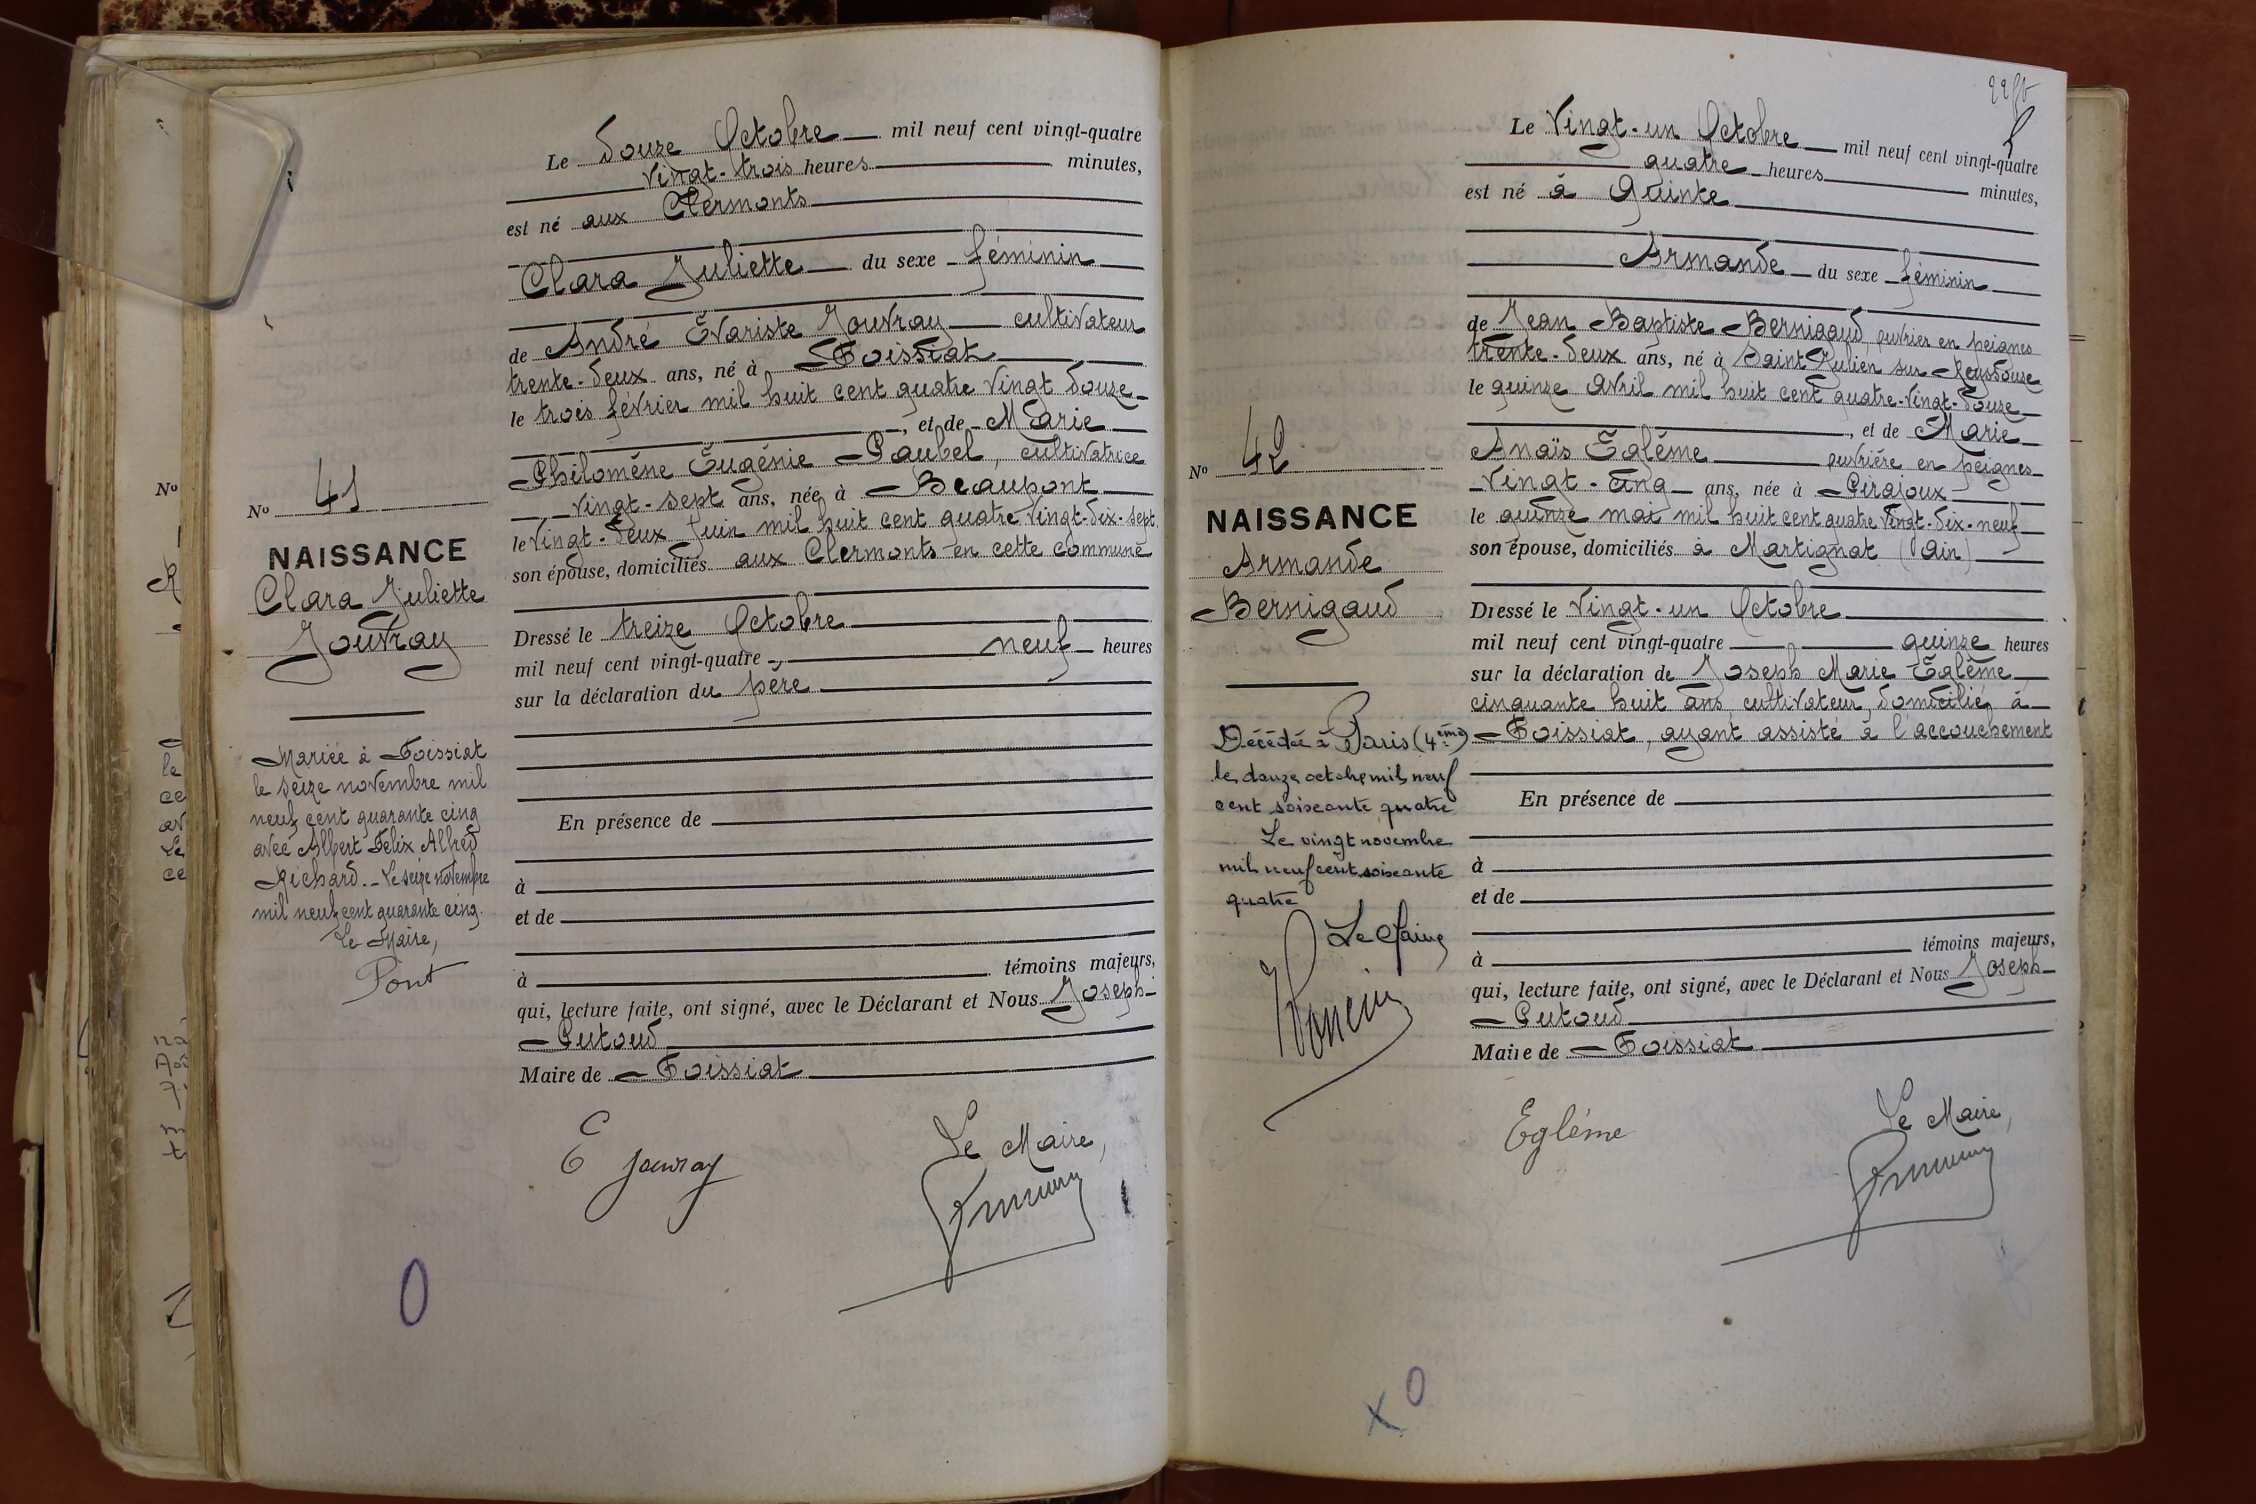 Le douze Octobre mil neuf cent vingt-quatre
vingt-trois heures minutes,
est né aux Clermonts
Clara Juliette du sexe féminin
de André Evariste Jouvray cultivateur
trente-deux ans, né à Foissiat
le trois février mil huit cent quatre vingt douze
, et de Marie
Philomène Eugénie Paubel, cultivatrice
vingt-sept ans, née à Beaupont
le vingt-deux juin mil huit cent quatre vingt-dix-sept
son épouse, domiciliés aux Clermonts en cette commune
Dressé le treize Octobre
mil neuf cent vingt-quatre, neuf heures
sur la déclaration du père
En présence de
à
et de
à témoins majeurs,
qui, lecture faite, ont signé, avec le Déclarant et Nous Joseph
Putoud
Maire de Foissiat
E Jouvray
Le Maire,
No
No 41
NAISSANCE
Clara Juliette
Jouvray
Mariée à Foissiat
le seize novembre mil
neuf cent quarante cinq
avec Albert Félix Alfred
Richard. Le seize novembre
mil neuf cent quarante cinq.
Le Maire,
Pont
Le Vingt-un Octobre mil neuf cent vingt-quatre
quatre heures minutes,
est né à Quinte
Armande du sexe féminin
de Jean Baptiste Bernigaud ouvrier en peignes
trente-deux ans, né à Saint Julien sur Reyssouze
le quinze avril mil huit cent quatre-vingt-douze
, et de Marie
Anaïs Eglème ouvrière en peignes
vingt-cinq ans, née à Pirajoux
le quinze mai mil huit cent quatre vingt-dix-neuf
son épouse, domiciliés à Martignat (Ain)
Dressé le vingt-un Octobre
mil neuf cent vingt-quatre quinze heures
sur la déclaration de Joseph Marie Eglème
cinquante huit ans cultivateur, domicilié à
Foissiat, ayant assisté à l'accouchement
En présence de
à
et de
à témoins majeurs,
qui, lecture faite, ont signé, avec le Déclarant et Nous Joseph
Putoud
Maire de Foissiat
Eglème
Le Maire,
No 42
NAISSANCE
Armande
Bernigaud
Décédée à Paris (4ème)
le douze octobre mil neuf
cent soixante quatre
Le vingt novembre
mil neuf cent soixante
quatre
Le Maire